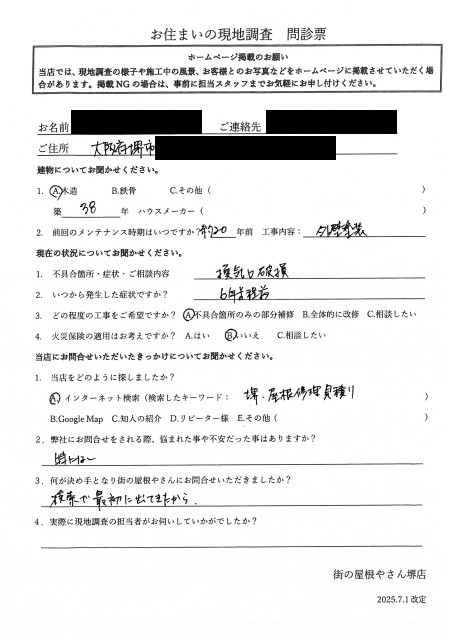 お住まいの現地調査　問診票
ホームページ掲載のお願い
当店では、現地調査の様子や施工中の風景、お客様とのお写真などをホームページに掲載させていただく場
合があります。掲載 NG の場合は、事前に担当スタッフまでお気軽にお申し付けください。
お名前　ご連絡先
ご住所　大阪府堺市
建物についてお聞かせください。
1. A.木造　B.鉄骨　C.その他（　）
築 38 年　ハウスメーカー（　）
2. 前回のメンテナンス時期はいつですか？約20 年前　工事内容：外壁塗装
現在の状況についてお聞かせください。
1. 不具合箇所・症状・ご相談内容　換気口破損
2. いつから発生した症状ですか？　6年程前
3. どの程度の工事をご希望ですか？ A.不具合箇所のみの部分補修　B.全体的に改修　C.相談したい
4. 火災保険の適用はお考えですか？ A.はい　B.いいえ　C.相談したい
当店にお問合せいただいたきっかけについてお聞かせください。
1. 当店をどのように探しましたか？
A. インターネット検索（検索したキーワード：　堺・屋根修理見積り　）
B.Google Map　C.知人の紹介　D.リピーター様　E.その他（　）
2. 弊社にお問合せをされる際、悩まれた事や不安だった事はありますか？
特になし
3. 何が決め手となり街の屋根やさんにお問合せいただきましたか？
検索で最初に出てきたから.
4. 実際に現地調査の担当者がお伺いしていかがでしたか？
街の屋根やさん堺店
2025.7.1 改定